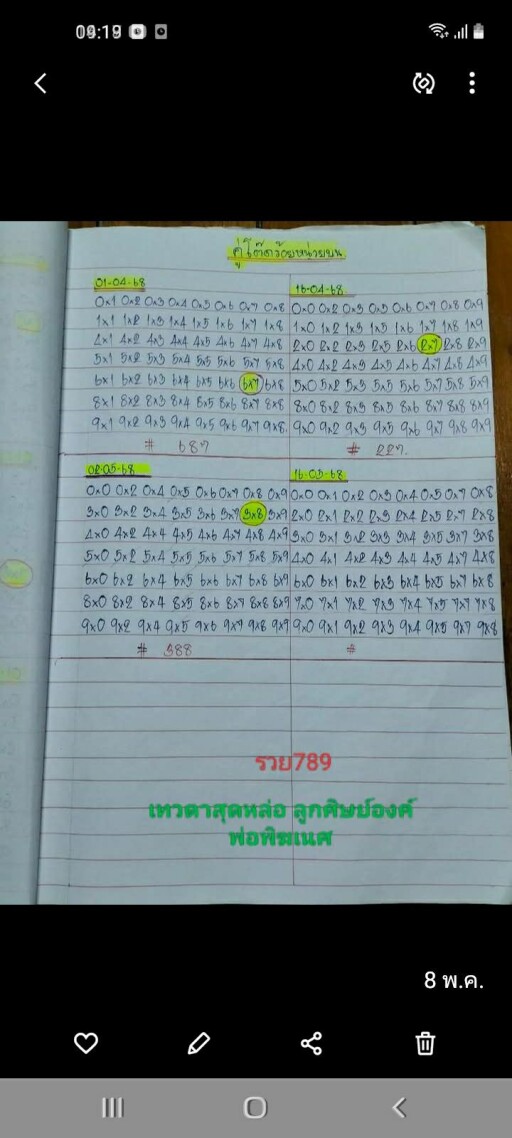 09:19
คู่โต๊ดร้อยหน่วยบน
01-04-68
0x1 0x2 0x3 0x4 0x5 0x6 0x7 0x8
1x1 1x2 1x3 1x4 1x5 1x6 1x7 1x8
4x1 4x2 4x3 4x4 4x5 4x6 4x7 4x8
5x1 5x2 5x3 5x4 5x5 5x6 5x7 5x8
6x1 6x2 6x3 6x4 6x5 6x6 6x7 6x8
8x1 8x2 8x3 8x4 8x5 8x6 8x7 8x8
9x1 9x2 9x3 9x4 9x5 9x6 9x7 9x8
# 687
16-04-68
0x0 0x2 0x3 0x5 0x6 0x7 0x8 0x9
1x0 1x2 1x3 1x5 1x6 1x7 1x8 1x9
2x0 2x2 2x3 2x5 2x6 2x7 2x8 2x9
4x0 4x2 4x3 4x5 4x6 4x7 4x8 4x9
5x0 5x2 5x3 5x5 5x6 5x7 5x8 5x9
8x0 8x2 8x3 8x5 8x6 8x7 8x8 8x9
9x0 9x2 9x3 9x5 9x6 9x7 9x8 9x9
# 227
02-05-68
0x0 0x2 0x4 0x5 0x6 0x7 0x8 0x9
3x0 3x2 3x4 3x5 3x6 3x7 3x8 3x9
4x0 4x2 4x4 4x5 4x6 4x7 4x8 4x9
5x0 5x2 5x4 5x5 5x6 5x7 5x8 5x9
6x0 6x2 6x4 6x5 6x6 6x7 6x8 6x9
8x0 8x2 8x4 8x5 8x6 8x7 8x8 8x9
9x0 9x2 9x4 9x5 9x6 9x7 9x8 9x9
# 388
16-05-68
0x0 0x1 0x2 0x3 0x4 0x5 0x7 0x8
2x0 2x1 2x2 2x3 2x4 2x5 2x7 2x8
3x0 3x1 3x2 3x3 3x4 3x5 3x7 3x8
4x0 4x1 4x2 4x3 4x4 4x5 4x7 4x8
6x0 6x1 6x2 6x3 6x4 6x5 6x7 6x8
7x0 7x1 7x2 7x3 7x4 7x5 7x7 7x8
9x0 9x1 9x2 9x3 9x4 9x5 9x7 9x8
#
รวย789
เทวดาสุดหล่อ ลูกศิษย์องค์
พ่อพิฆเนศ
8 พ.ค.